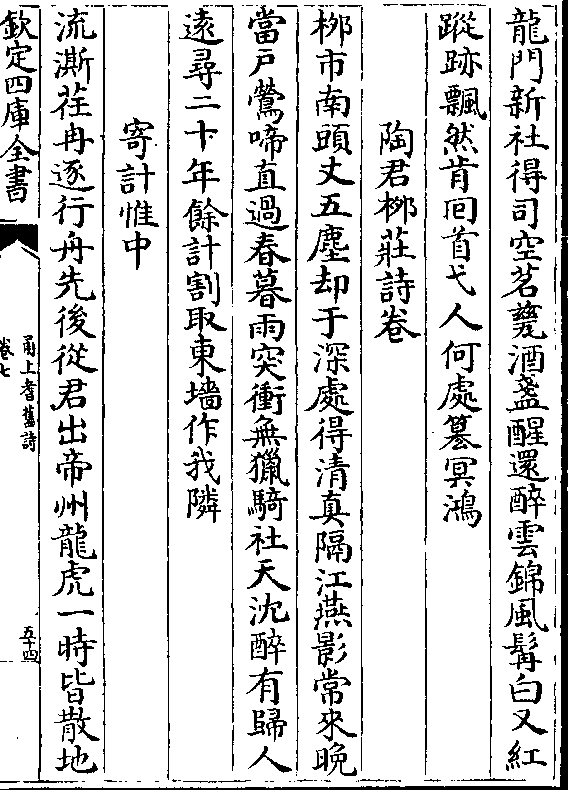 龍門新社得司空茗甕酒盞醒還醉雲錦風髯白又紅
蹤跡飄然肯囘首弋人何處篡冥鴻
陶君桞莊詩卷
桞市南頭丈五塵却于深處得清真隔江燕影常來晚
當戸鶯啼直過春暮雨突衝無獵騎社天沈醉有歸人
遠尋二十年餘計割取東墻作我隣
寄計惟中
流澌荏冉逐行舟先後從君出帝州龍虎一時皆散地
欽定四庫全書
甬上耆舊詩
卷七
五十四